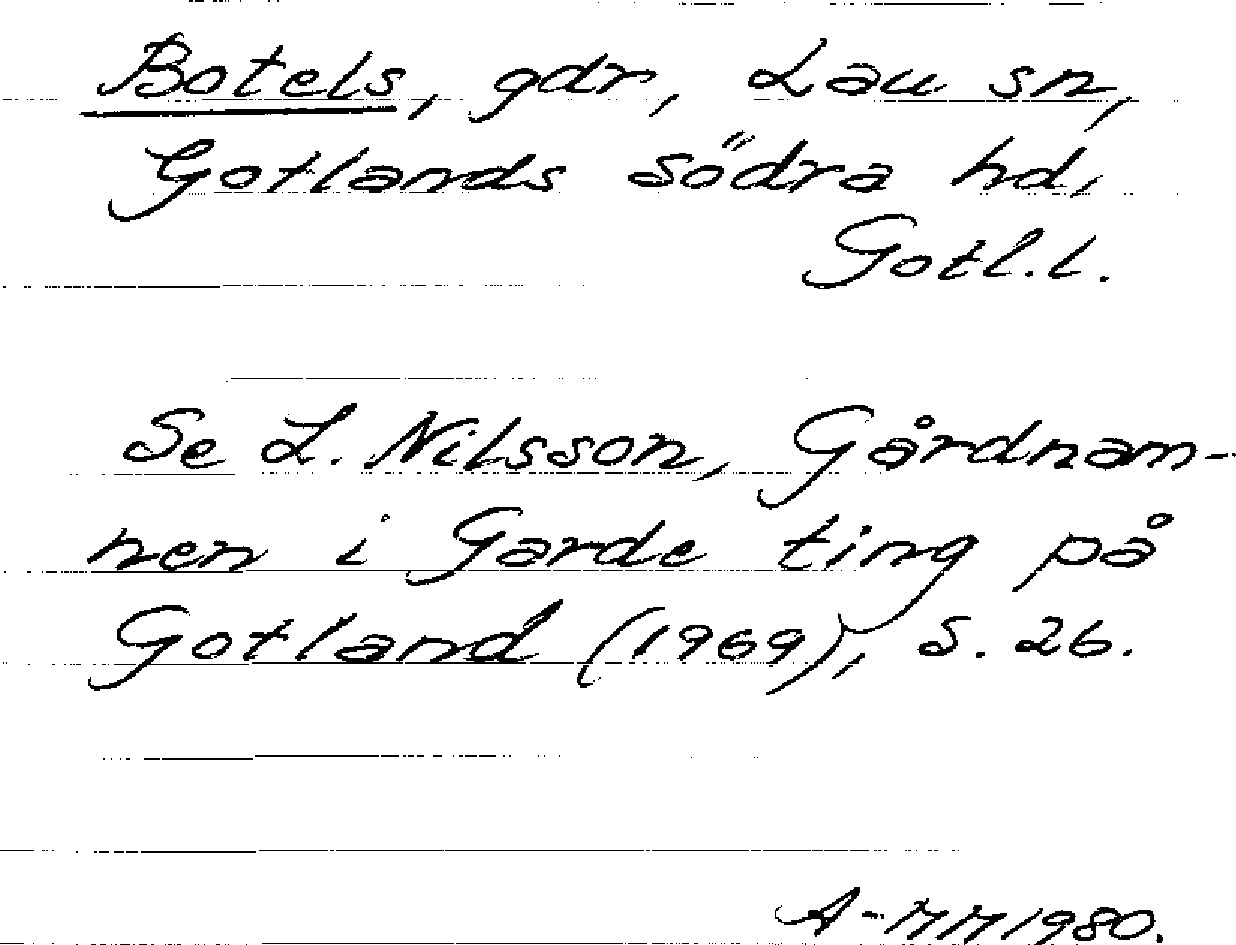 Botels, gdr, Lau sn,
Gotlands södra hd,
Gotl.l.
Se L. Nilsson, Gårdnam-
nen i Garde ting på
Gotland (1969), S. 26.
A-MM1980.